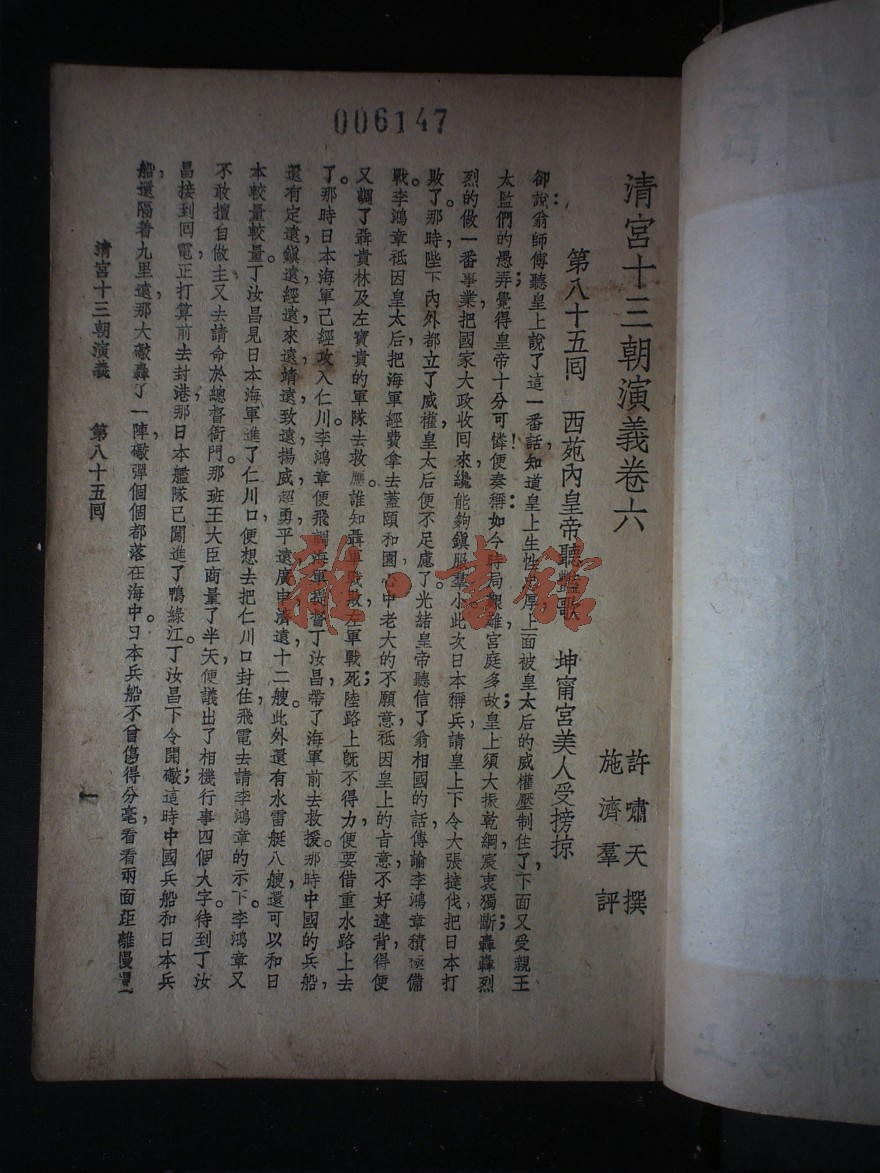 006147
清宮十三朝演義卷六
許嘯天撰
施濟羣評
第八十五回　西苑內皇帝聽豔歌　坤甯宮美人受搒掠
卻說翁師傅聽皇上說了這一番話知道皇上生性厚上面被皇太后的威權壓制住了下面又受親王
太監們的愚弄覺得皇帝十分可憐便奏稱如今時局艱難宮庭多故皇上須大振乾綱宸衷獨斷轟轟烈
烈的做一番事業把國家大政收回來纔能夠鎮服羣小此次日本稱兵請皇上下令大張撻伐把日本打
敗了那時陛下內外都立了威權皇太后便不足慮了光緒皇帝聽信了翁相國的話傳諭李鴻章積極備
戰李鴻章祗因皇太后把海軍經費拿去蓋頤和園心中老大的不願意祗因皇上的旨意不好違背得便
又調了聶貴林及左寶貴的軍隊去救應誰知聶軍戰敗左軍戰死陸路上旣不得力便要借重水路上去
了那時日本海軍已經攻入仁川李鴻章便飛調海軍提督丁汝昌帶了海軍前去救援那時中國的兵船
還有定遠鎮遠經遠來遠靖遠致遠揚威超勇平遠廣甲濟遠十二艘此外還有水雷艇八艘還可以和日
本較量較量丁汝昌見日本海軍進了仁川口便想去把仁川口封住飛電去請李鴻章的示下李鴻章又
不敢擅自做主又去請命於總督衙門那班王大臣商量了半天便議出了相機行事四個大字待到丁汝
昌接到回電正打算前去封港那日本艦隊已闖進了鴨綠江丁汝昌下令開礮這時中國兵船和日本兵
船還隔着九里遠那大礮轟了一陣礮彈個個都落在海中日本兵船不曾傷得分毫看看兩面距離慢慢
清宮十三朝演義　第八十五回
一
雜·書館